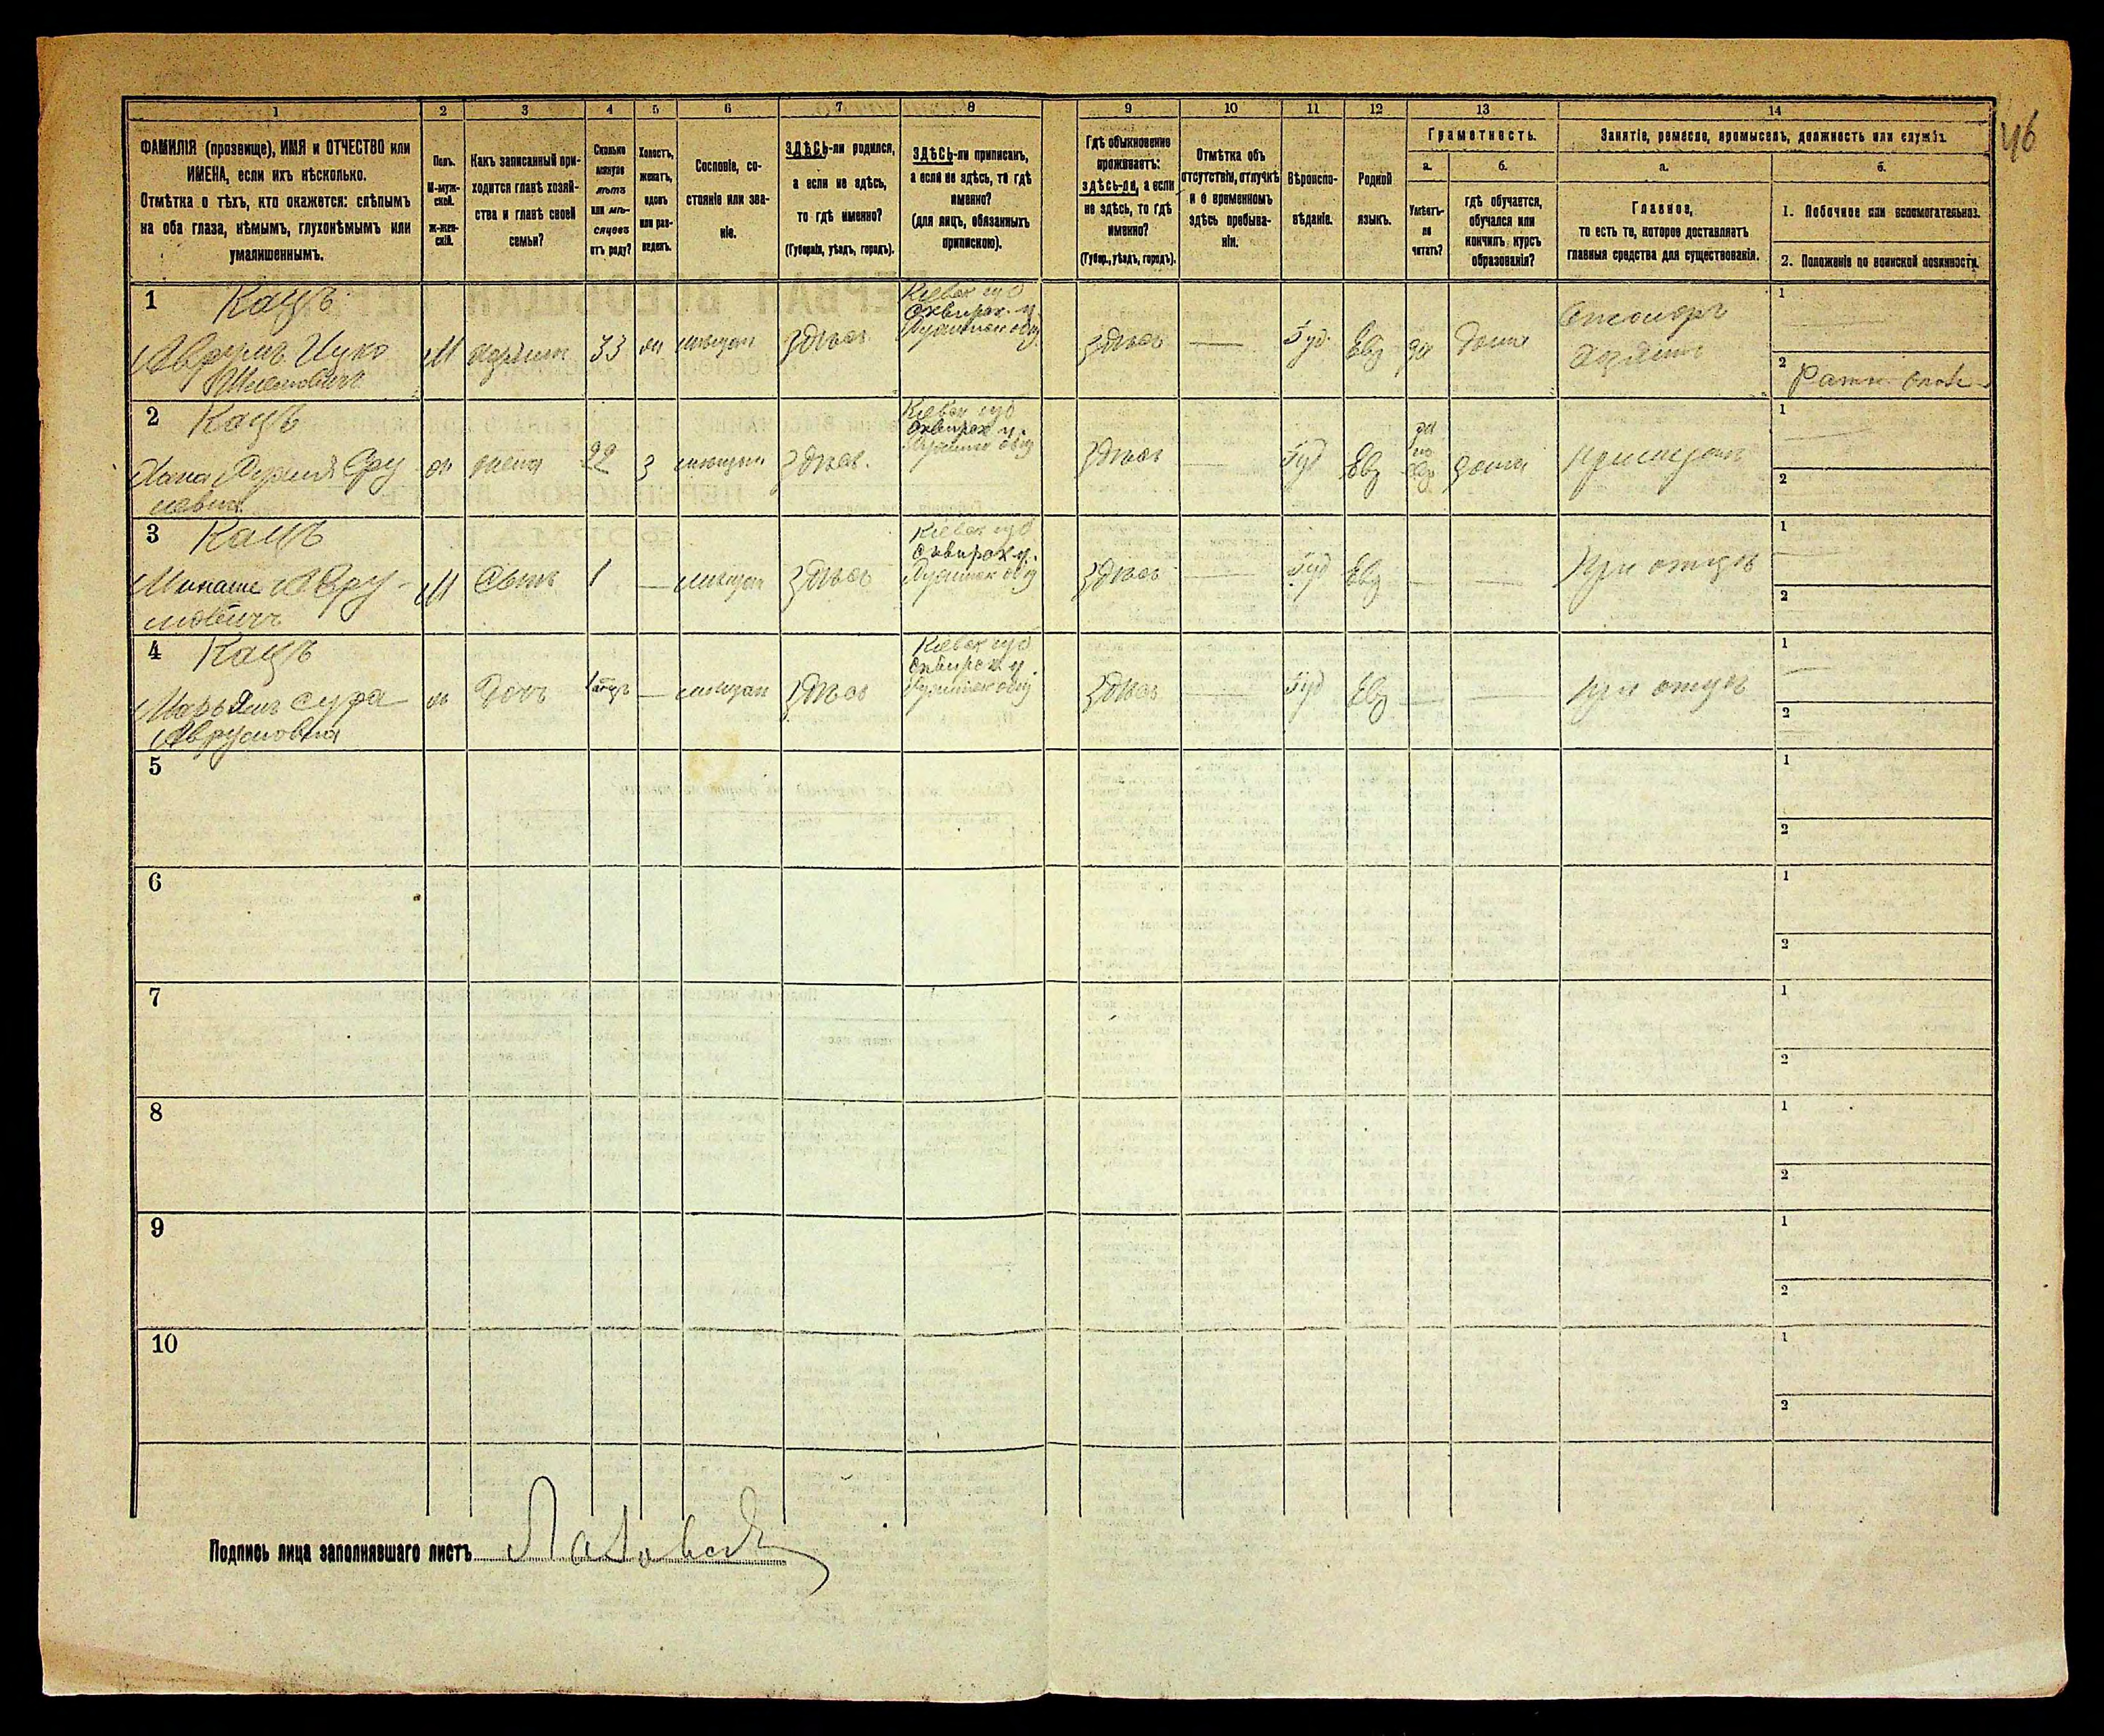 46
1 2 3 4 5 6 7 8 9 10 11 12 13 14
ФАМИЛІЯ (прозвище), ИМЯ и ОТЧЕСТВО или
ИМЕНА, если ихъ нѣсколько.
Отмѣтка о тѣхъ, кто окажется: слѣпымъ
на оба глаза, нѣмымъ, глухонѣмымъ или
умалишеннымъ.
Полъ.
М-муж-
ской.
Ж-жен-
скій.
Какъ записанный при-
ходится главѣ хозяй-
ства и главѣ своей
семьи?
Сколько
минуло
лѣтъ
или мѣ-
сяцевъ
отъ роду?
Холостъ,
женатъ,
вдовъ
или раз-
веденъ.
Сословіе, со-
стояніе или зва-
ніе.
ЗДѢСЬ-ли родился,
а если не здѣсь,
то гдѣ именно?
(Губернія, уѣздъ, городъ).
ЗДѢСЬ-ли приписанъ,
а если не здѣсь, то гдѣ
именно?
(для лицъ, обязанныхъ
припискою).
Гдѣ обыкновенно
проживаетъ:
здѣсь-ли, а если
не здѣсь, то гдѣ
именно?
(Губер., уѣздъ, городъ).
Отмѣтка объ
отсутствіи, отлучкѣ
и о временномъ
здѣсь пребыва-
ніи.
Вѣроиспо-
вѣданіе.
Родной
языкъ.
Грамотность.
а.
Умѣетъ-
ли
читать?
б.
гдѣ обучается,
обучался или
кончилъ курсъ
образованія?
Занятіе, ремесло, промыселъ, должность или служба.
а.
Главное,
то есть то, которое доставляетъ
главныя средства для существованія.
б.
1. Побочное или вспомогательное.
2. Положеніе по воинской повинности.
1 Кацъ
Аврумъ Ицко
М хозяинъ 33 ж мѣщан здѣсь
Кіевск губ
Сквирск. у.
здѣсь — Іуд Евр да дома
Столяръ
хозяинъ
1
2 Ратн
2 Кацъ
Хана
ж жена 22 з мѣщан здѣсь
Кіевск губ
Сквирск у.
здѣсь — Іуд Евр
да
по
евр
дома
При мужѣ
1
2
3 Кацъ
Минаше Авру-
мовичъ
М Сынъ 1 — мѣщан здѣсь
Кіевск губ
Сквирск у.
здѣсь — Іуд Евр — —
При отцѣ
1
2
4 Кацъ
Марьямъ Сура
Аврумовна
ж Дочь — мѣщан здѣсь
Кіевск губ
Сквирск у.
здѣсь — Іуд Евр — —
при отцѣ
1
2
5
1
2
6
1
2
7
1
2
8
1
2
9
1
2
10
1
2
Подпись лица заполнявшаго листъ